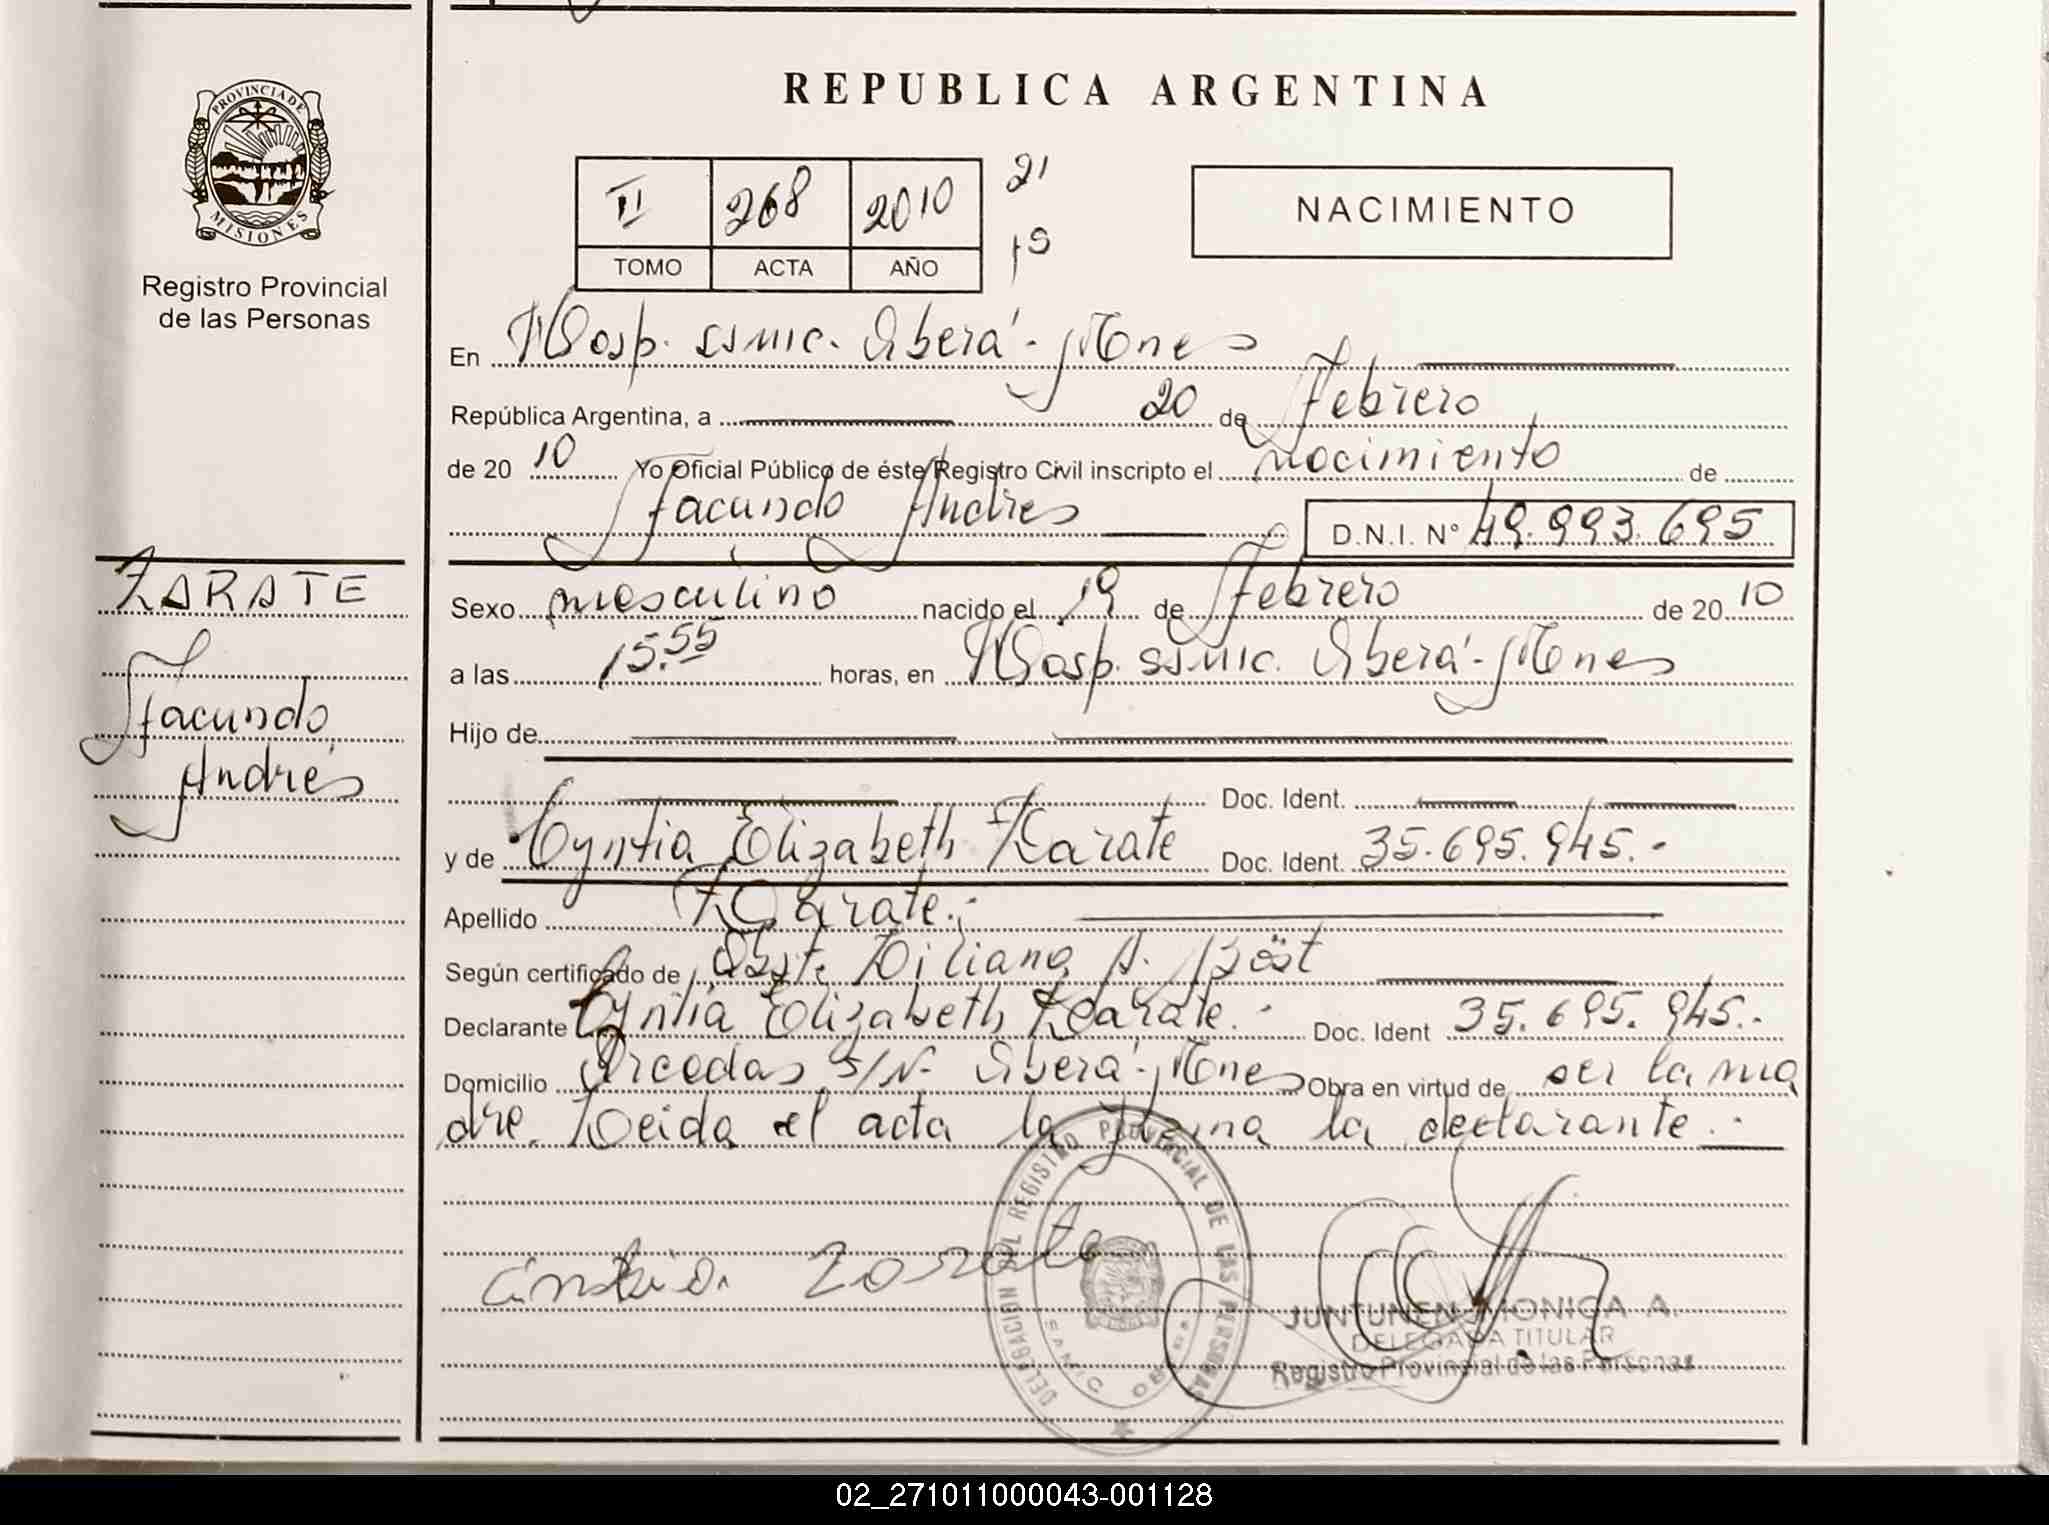 REPUBLICA ARGENTINA
PROVINCIA DE
MISIONES
Registro Provincial
de las Personas
II 268 2010 21
TOMO ACTA AÑO 19
NACIMIENTO
En Hosp. ssmic. Oberá - Mnes
República Argentina, a 20 de Febrero
de 20 10 Yo Oficial Público de éste Registro Civil inscripto el nacimiento de
Facundo Andres D.N.I. N° 49.993.695
ZARATE
Facundo
Andrés
Sexo masculino nacido el 19 de Febrero de 20 10
a las 15.55 horas, en Hosp. ssmic. Oberá - Mnes
Hijo de
Doc. Ident.
y de Cyntia Elizabeth Zarate Doc. Ident. 35.695.945.-
Apellido Zarate.-
Según certificado de Obst. Liliana A. Böst
Declarante Cyntia Elizabeth Zarate.- Doc. Ident 35.695.945.-
Domicilio S/N- Oberá - Mnes Obra en virtud de ser la ma
dre. Leida el acta la firma la declarante.-
cintia zarate
DELEGACION DEL REGISTRO PROVINCIAL DE LAS PERSONAS
JUNTUNEN MONICA A.
DELEGADA TITULAR
Registro Provincial de las Personas
02_271011000043-001128